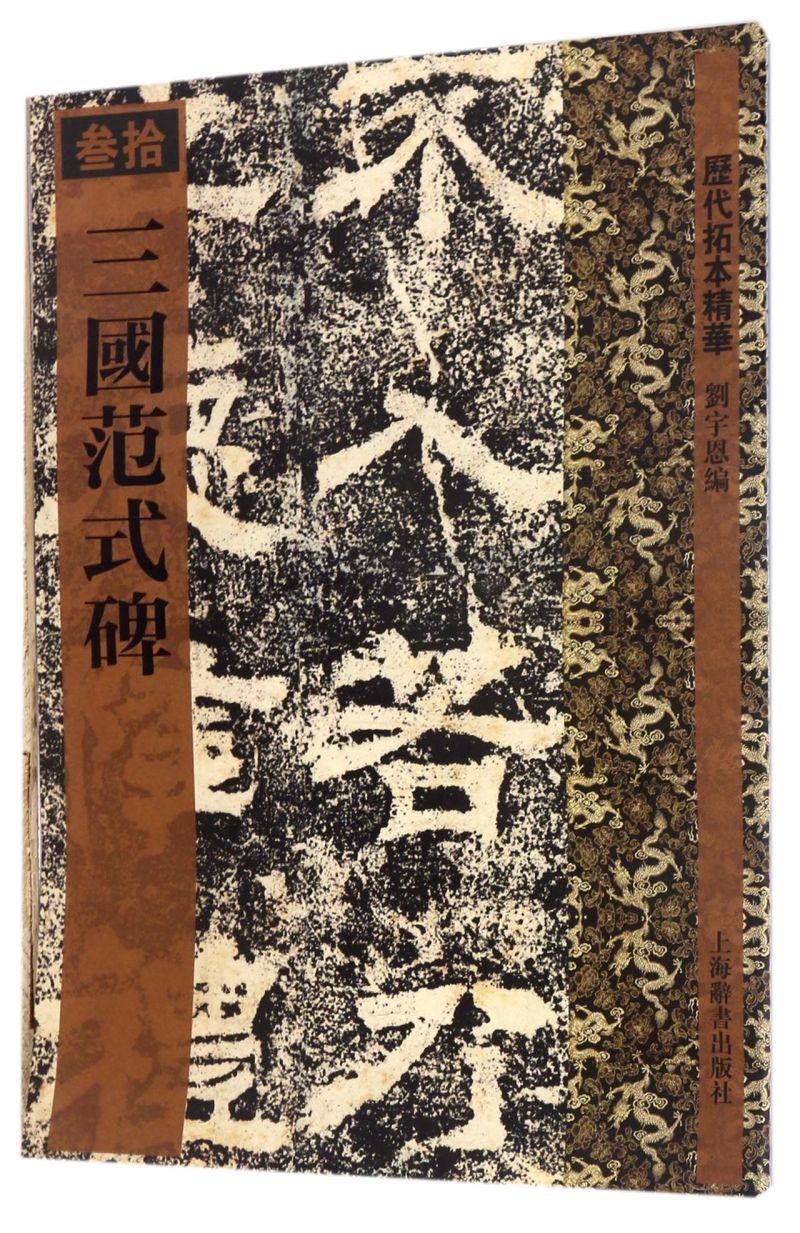 叁拾
三國范式碑
不
人
者
乃
歷代拓本精華 劉宇恩編
上海辭書出版社